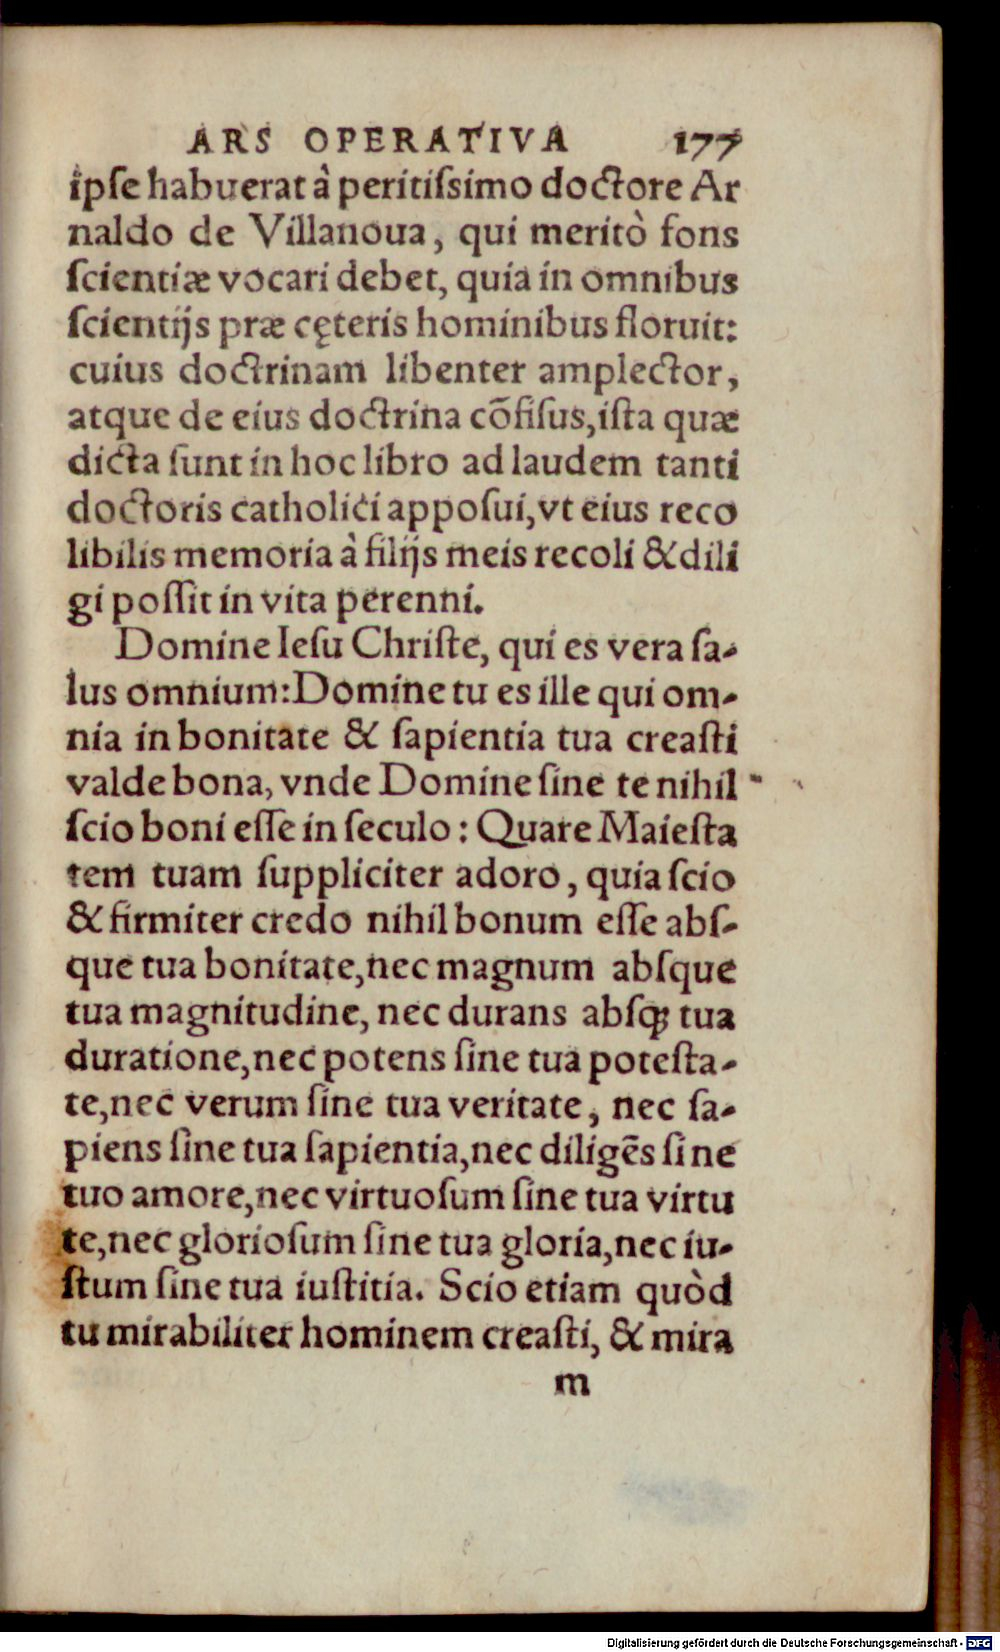 ARS OPERATIVA 177
ipſe habuerat à peritiſsimo doctore Ar
naldo de Villanoua, qui meritò fons
ſcientiæ vocari debet, quia in omnibus
ſcientijs præ cęteris hominibus floruit:
cuius doctrinam libenter amplector,
atque de eius doctrina cõfiſus, iſta quæ
dicta ſunt in hoc libro ad laudem tanti
doctoris catholici appoſui, vt eius reco
libilis memoria à filijs meis recoli & dili
gi poſſit in vita perenni.
Domine Ieſu Chriſte, qui es vera ſa-
lus omnium: Domine tu es ille qui om-
nia in bonitate & ſapientia tua creaſti
valde bona, vnde Domine ſine te nihil
ſcio boni eſſe in ſeculo: Quare Maieſta
tem tuam ſuppliciter adoro, quia ſcio
& firmiter credo nihil bonum eſſe abſ-
que tua bonitate, nec magnum abſque
tua magnitudine, nec durans abſq; tua
duratione, nec potens ſine tua poteſta-
te, nec verum ſine tua veritate, nec ſa-
piens ſine tua ſapientia, nec diligẽs ſine
tuo amore, nec virtuoſum ſine tua virtu
te, nec glorioſum ſine tua gloria, nec iu-
ſtum ſine tua iuſtitia. Scio etiam quòd
tu mirabiliter hominem creaſti, & mira
m
Digitalisierung gefördert durch die Deutsche Forschungsgemeinschaft - DFG